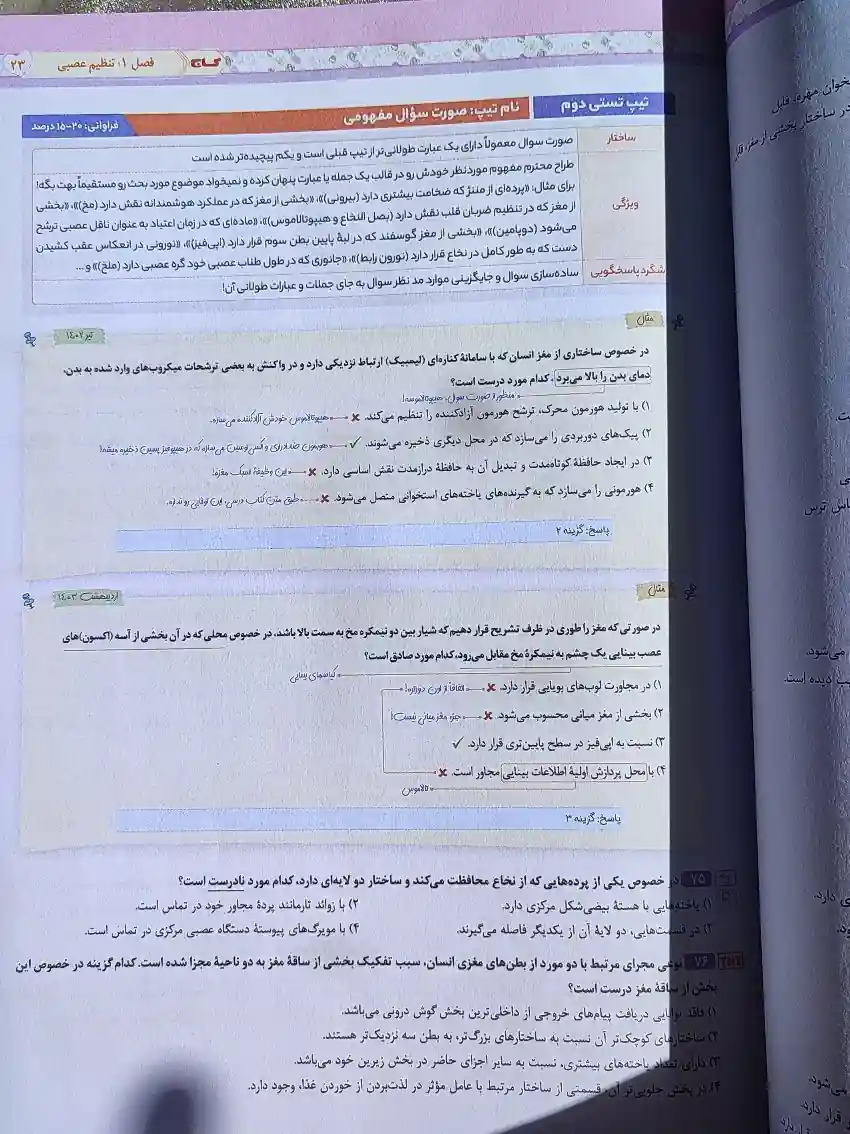 فصل ۱: تنظیم عصبی
۲۳
گاج
تیپ تستی دوم
نام تیپ: صورت سؤال مفهومی
فراوانی: ۲۰-۱۵ درصد
ساختار
صورت سوال معمولاً دارای یک عبارت طولانی‌تر از تیپ قبلی است و یکم پیچیده‌تر شده است
ویژگی
طراح محترم مفهوم موردنظر خودش رو در قالب یک جمله یا عبارت پنهان کرده و نمیخواد موضوع مورد بحث رو مستقیماً بهت بگه!
برای مثال: «پرده‌ای از مننژ که ضخامت بیشتری دارد (بیرونی)»، «بخشی از مغز که در عملکرد هوشمندانه نقش دارد (مخ)»، «بخشی
از مغز که در تنظیم ضربان قلب نقش دارد (بصل النخاع و هیپوتالاموس)»، «ماده‌ای که در زمان اعتیاد به عنوان ناقل عصبی ترشح
می‌شود (دوپامین)»، «بخشی از مغز گوسفند که در لبهٔ پایین بطن سوم قرار دارد (اپی‌فیز)»، «نورونی در انعکاس عقب کشیدن
دست که به طور کامل در نخاع قرار دارد (نورون رابط)»، «جانوری که در طول طناب عصبی خود گره عصبی دارد (ملخ)» و...
شگرد پاسخگویی
ساده‌سازی سوال و جایگزینی موارد مد نظر سوال به جای جملات و عبارات طولانی آن!
مثال
تیر ۱۴۰۲
در خصوص ساختاری از مغز انسان که با سامانهٔ کناره‌ای (لیمبیک) ارتباط نزدیکی دارد و در واکنش به بعضی ترشحات میکروب‌های وارد شده به بدن،
دمای بدن را بالا می‌برد، کدام مورد درست است؟
منظور از صورت سوال، هیپوتالاموسه!
۱) با تولید هورمون محرک، ترشح هورمون آزادکننده را تنظیم می‌کند. ✘ هیپوتالاموس خودش آزادکننده می‌سازه.
۲) پیک‌های دوربردی را می‌سازد که در محل دیگری ذخیره می‌شوند. ✓ هورمون ضدادراری و اکسی‌توسین می‌سازه که در هیپوفیز پسین ذخیره میشه!
۳) در ایجاد حافظهٔ کوتاه‌مدت و تبدیل آن به حافظهٔ درازمدت نقش اساسی دارد. ✘ این وظیفهٔ اسبک مغزه!
۴) هورمونی را می‌سازد که به گیرنده‌های یاخته‌های استخوانی متصل می‌شود. ✘ طبق متن کتاب درسی، این توانایی رو نداره.
پاسخ: گزینه ۲
مثال
اردیبهشت ۱۴۰۳
در صورتی که مغز را طوری در ظرف تشریح قرار دهیم که شیار بین دو نیمکره مخ به سمت بالا باشد، در خصوص محلی که در آن بخشی از آسه (اکسون)های
عصب بینایی یک چشم به نیمکرهٔ مخ مقابل می‌رود، کدام مورد صادق است؟
کیاسمای بینایی
۱) در مجاورت لوب‌های بویایی قرار دارد. ✘ اتفاقاً از اون دورتره!
۲) بخشی از مغز میانی محسوب می‌شود. ✘ جزء مغز میانی نیست!
۳) نسبت به اپی‌فیز در سطح پایین‌تری قرار دارد. ✓
۴) با محل پردازش اولیهٔ اطلاعات بینایی مجاور است. ✘
تالاموس
پاسخ: گزینه ۳
۷۵ در خصوص یکی از پرده‌هایی که از نخاع محافظت می‌کند و ساختار دو لایه‌ای دارد، کدام مورد نادرست است؟
۱) یاخته‌هایی با هستهٔ بیضی‌شکل مرکزی دارد.
۲) با زوائد تارمانند پردهٔ مجاور خود در تماس است.
۳) در قسمت‌هایی، دو لایهٔ آن از یکدیگر فاصله می‌گیرند.
۴) با مویرگ‌های پیوستهٔ دستگاه عصبی مرکزی در تماس است.
۷۶ نوعی مجرای مرتبط با دو مورد از بطن‌های مغزی انسان، سبب تفکیک بخشی از ساقهٔ مغز به دو ناحیهٔ مجزا شده است. کدام گزینه در خصوص این
بخش از ساقهٔ مغز درست است؟
۱) فاقد توانایی دریافت پیام‌های خروجی از داخلی‌ترین بخش گوش درونی می‌باشد.
۲) ساختارهای کوچک‌تر آن نسبت به ساختارهای بزرگ‌تر، به بطن سه نزدیک‌تر هستند.
۳) دارای تعداد یاخته‌های بیشتری، نسبت به سایر اجزای حاضر در بخش زیرین خود می‌باشد.
۴) در بخش جلویی‌تر آن، قسمتی از ساختار مرتبط با عامل مؤثر در لذت‌بردن از خوردن غذا، وجود دارد.
خوان مهره، فاقد
در ساختار بخشی از مغز، قار
ترس
می‌شود.
دیده است.
دارد.
می‌شود.
قرار دارد.